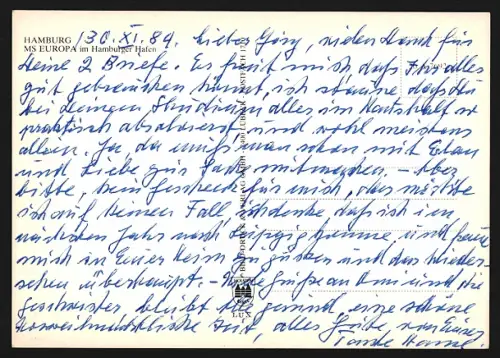 HAMBURG 30.XI.89. Lieber Görg, vielen Dank für
MS EUROPA im Hamburger Hafen
Deine 2 Briefe. Es freut mich daß Ihr alles
gut gebrauchen könnt, ich staune daß Du
bei Deinem Studium alles im Haushalt so
praktisch absolvierst und wohl meistens
allein. Ja, da muß man schon mit Elan
und Liebe zur Sache mitmachen. – Aber
bitte, kein Geschenk für mich, das möchte
ich auf keinen Fall. Ich denke daß ich im
nächsten Jahr nach Leipzig komme und freue
mich in Euer Heim zu gucken und das Wieder-
sehen überhaupt. – Viele Grüße an Omi und die
Geschwister, bleibt gesund, eine schöne
vorweihnachtliche Zeit, alles Gute, von Eurer
Tante
LUX